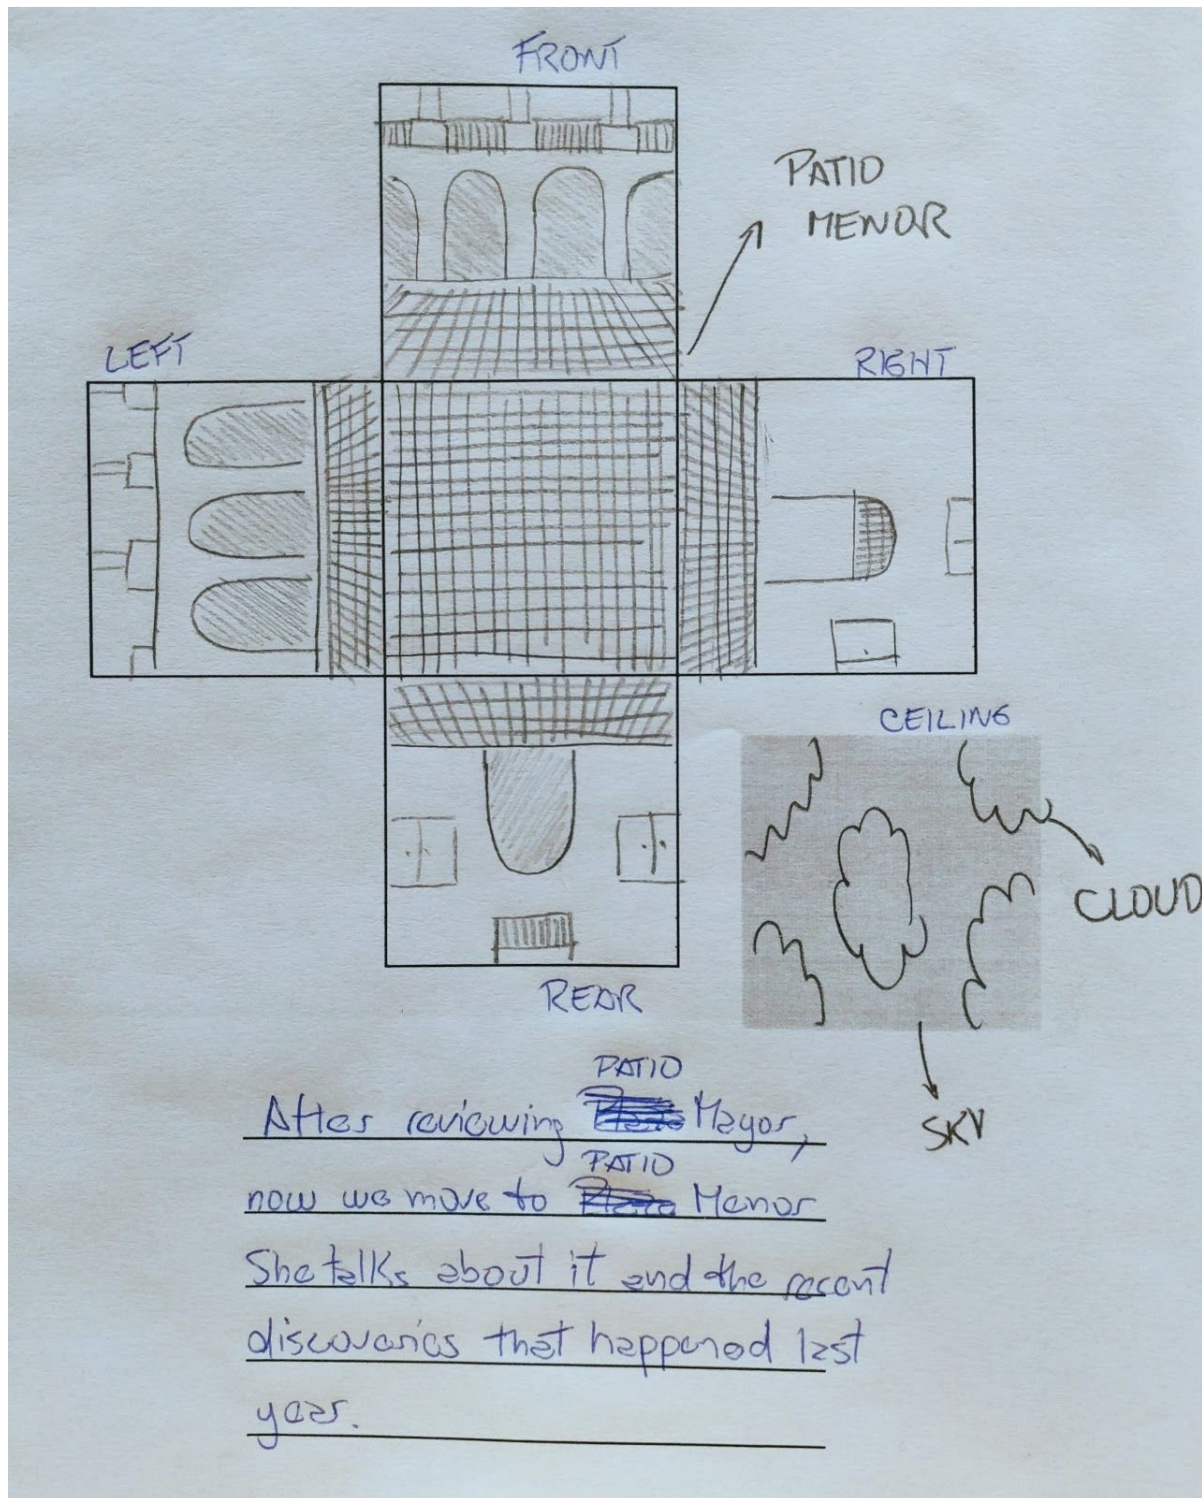 FRONT
PATIO
MENOR
LEFT
RIGHT
CEILING
CLOUD
REAR
SKY
After reviewing PATIO Mayor,
now we move to PATIO Menor
She talks about it and the recent
discoveries that happened last
year.